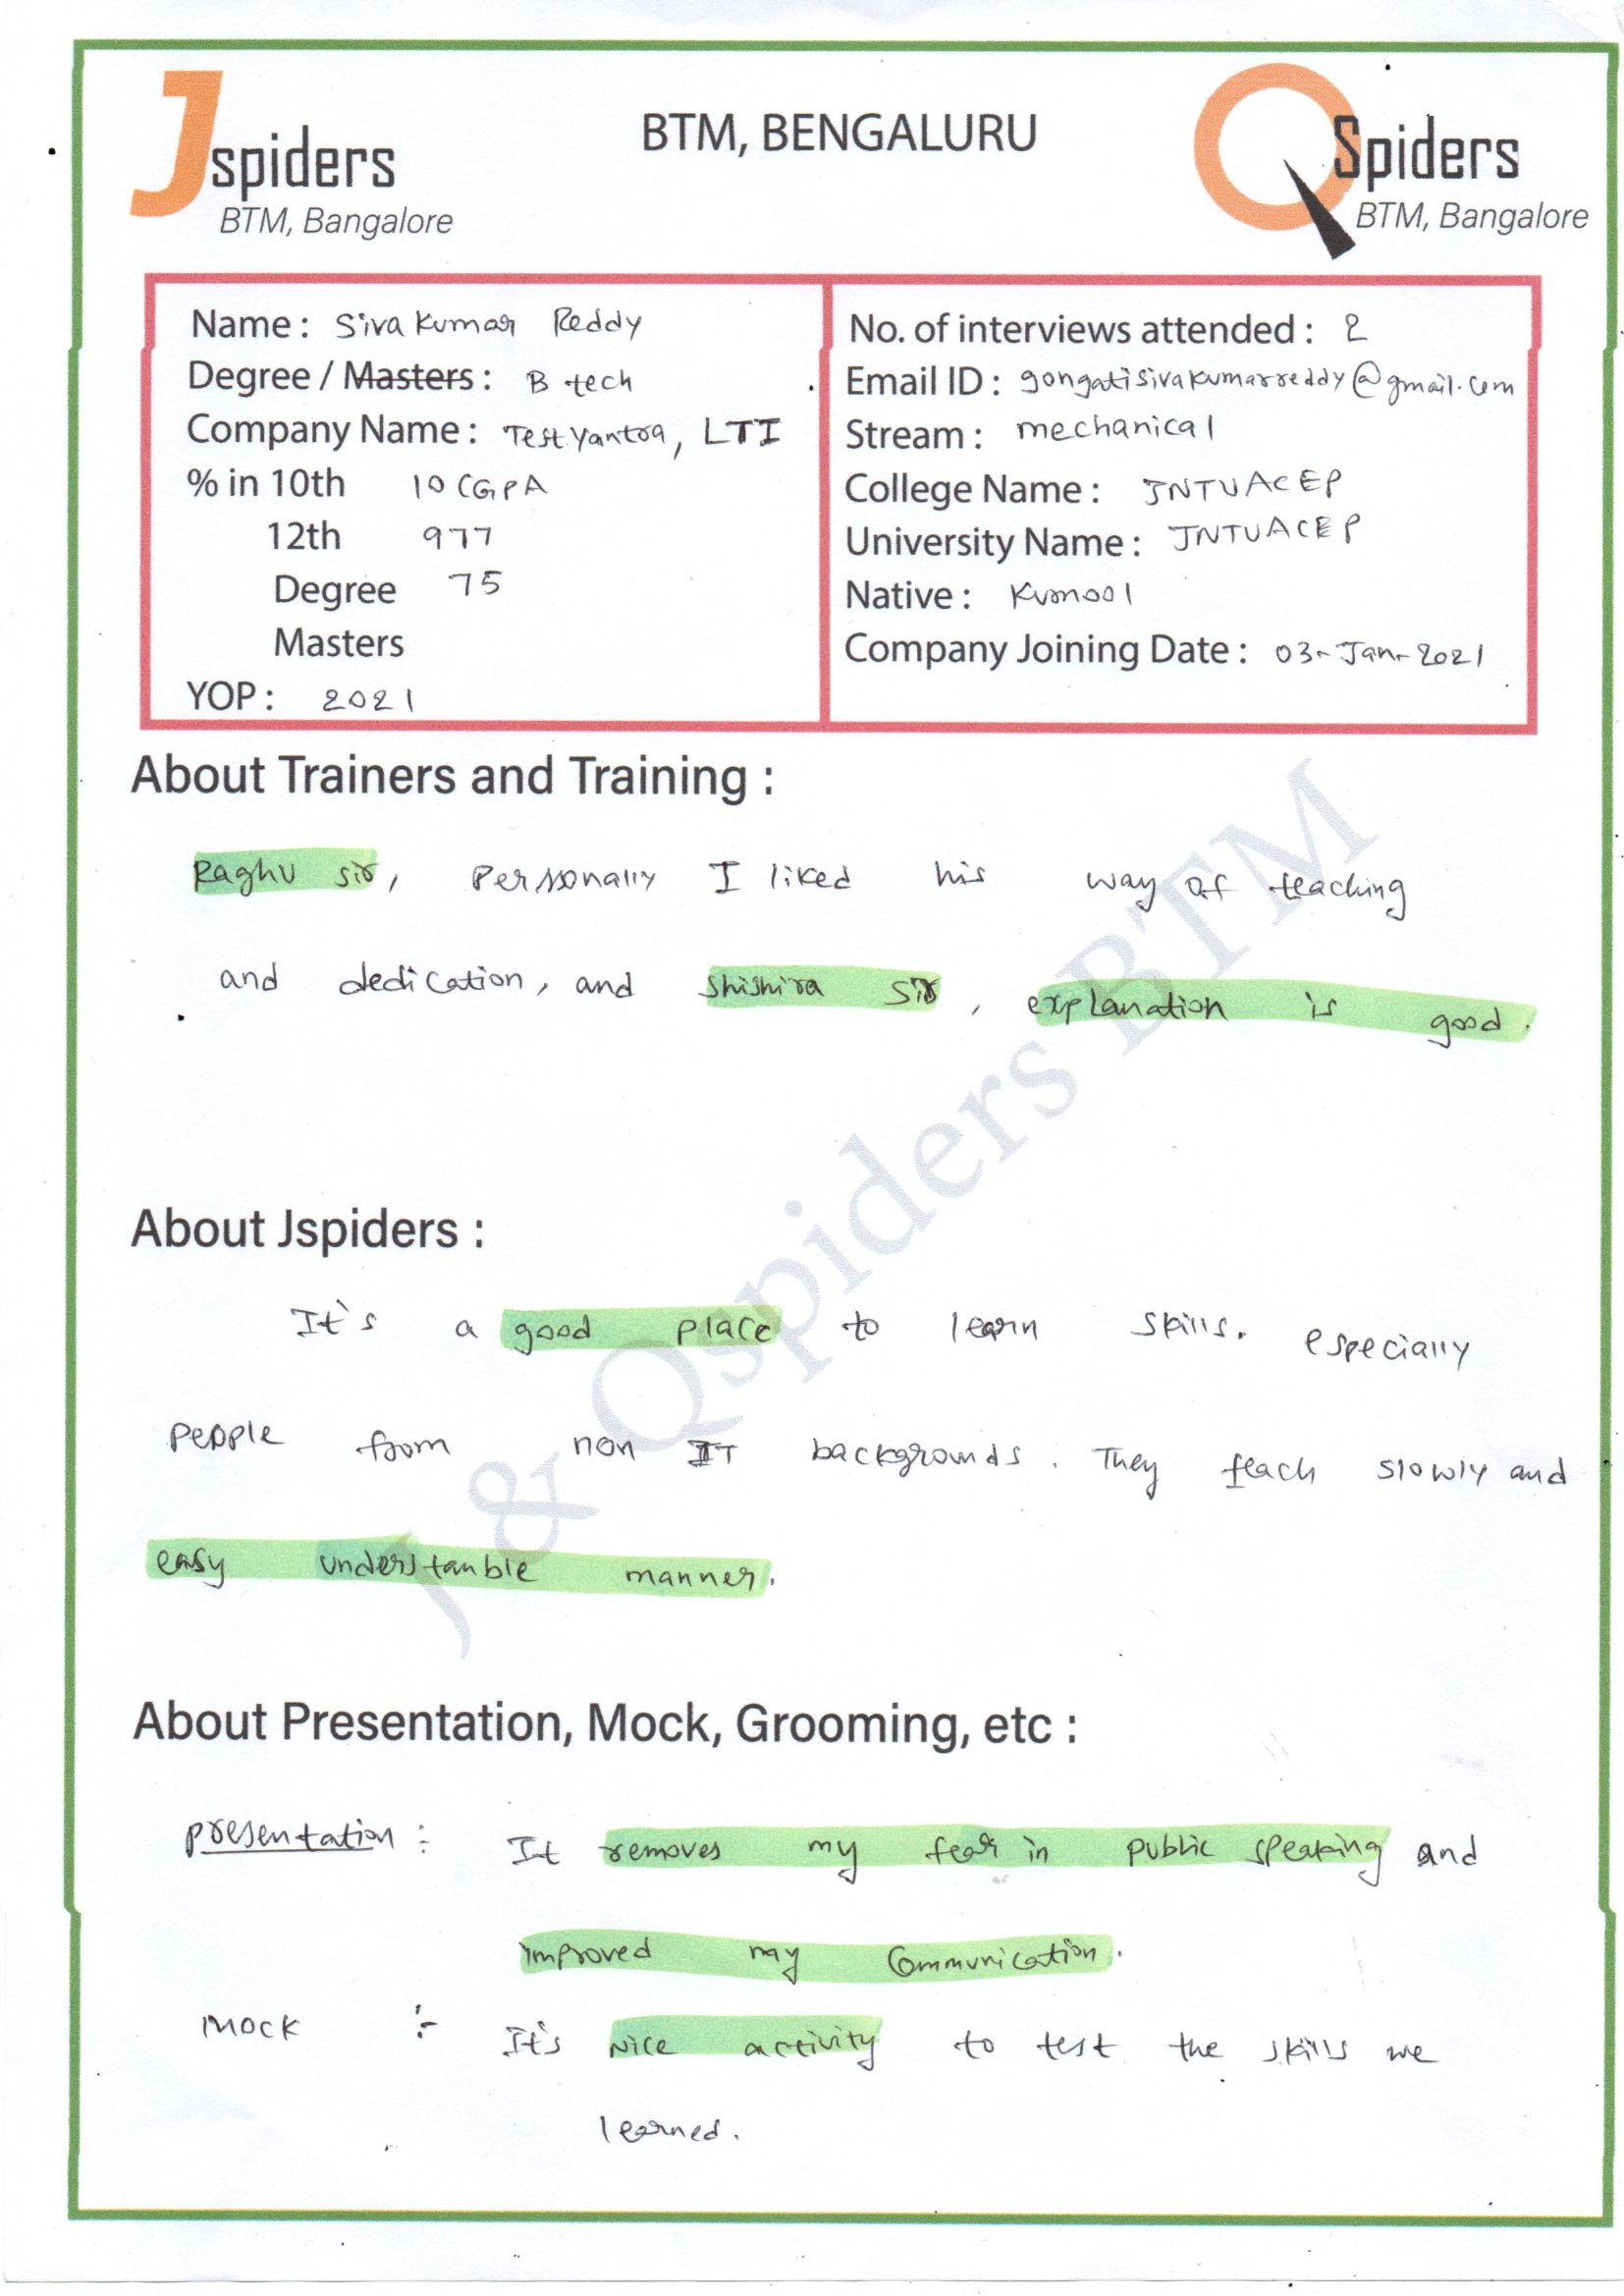 Jspiders
BTM, Bangalore
BTM, BENGALURU
QSpiders
BTM, Bangalore
Name : Siva Kumar Reddy
Degree / Masters : B tech
Company Name : Test Yantra, LTI
% in 10th 10 CGPA
12th 977
Degree 75
Masters
YOP : 2021
No. of interviews attended : 2
Email ID : gongatisivakumarreddy@gmail.com
Stream : mechanical
College Name : JNTUACEP
University Name : JNTUACEP
Native : Kurnool
Company Joining Date : 03-Jan-2021
About Trainers and Training :
Raghu sir, Personally I liked his way of teaching
and dedication, and Shishira Sir, explanation is good.
About Jspiders :
It's a good place to learn skills. especially
people from non IT backgrounds. They teach slowly and
easy understanble manner.
About Presentation, Mock, Grooming, etc :
presentation : It removes my fear in public speaking and
improved my Communication.
Mock :- It's Nice activity to test the skills we
learned.
J & Qspiders BTM